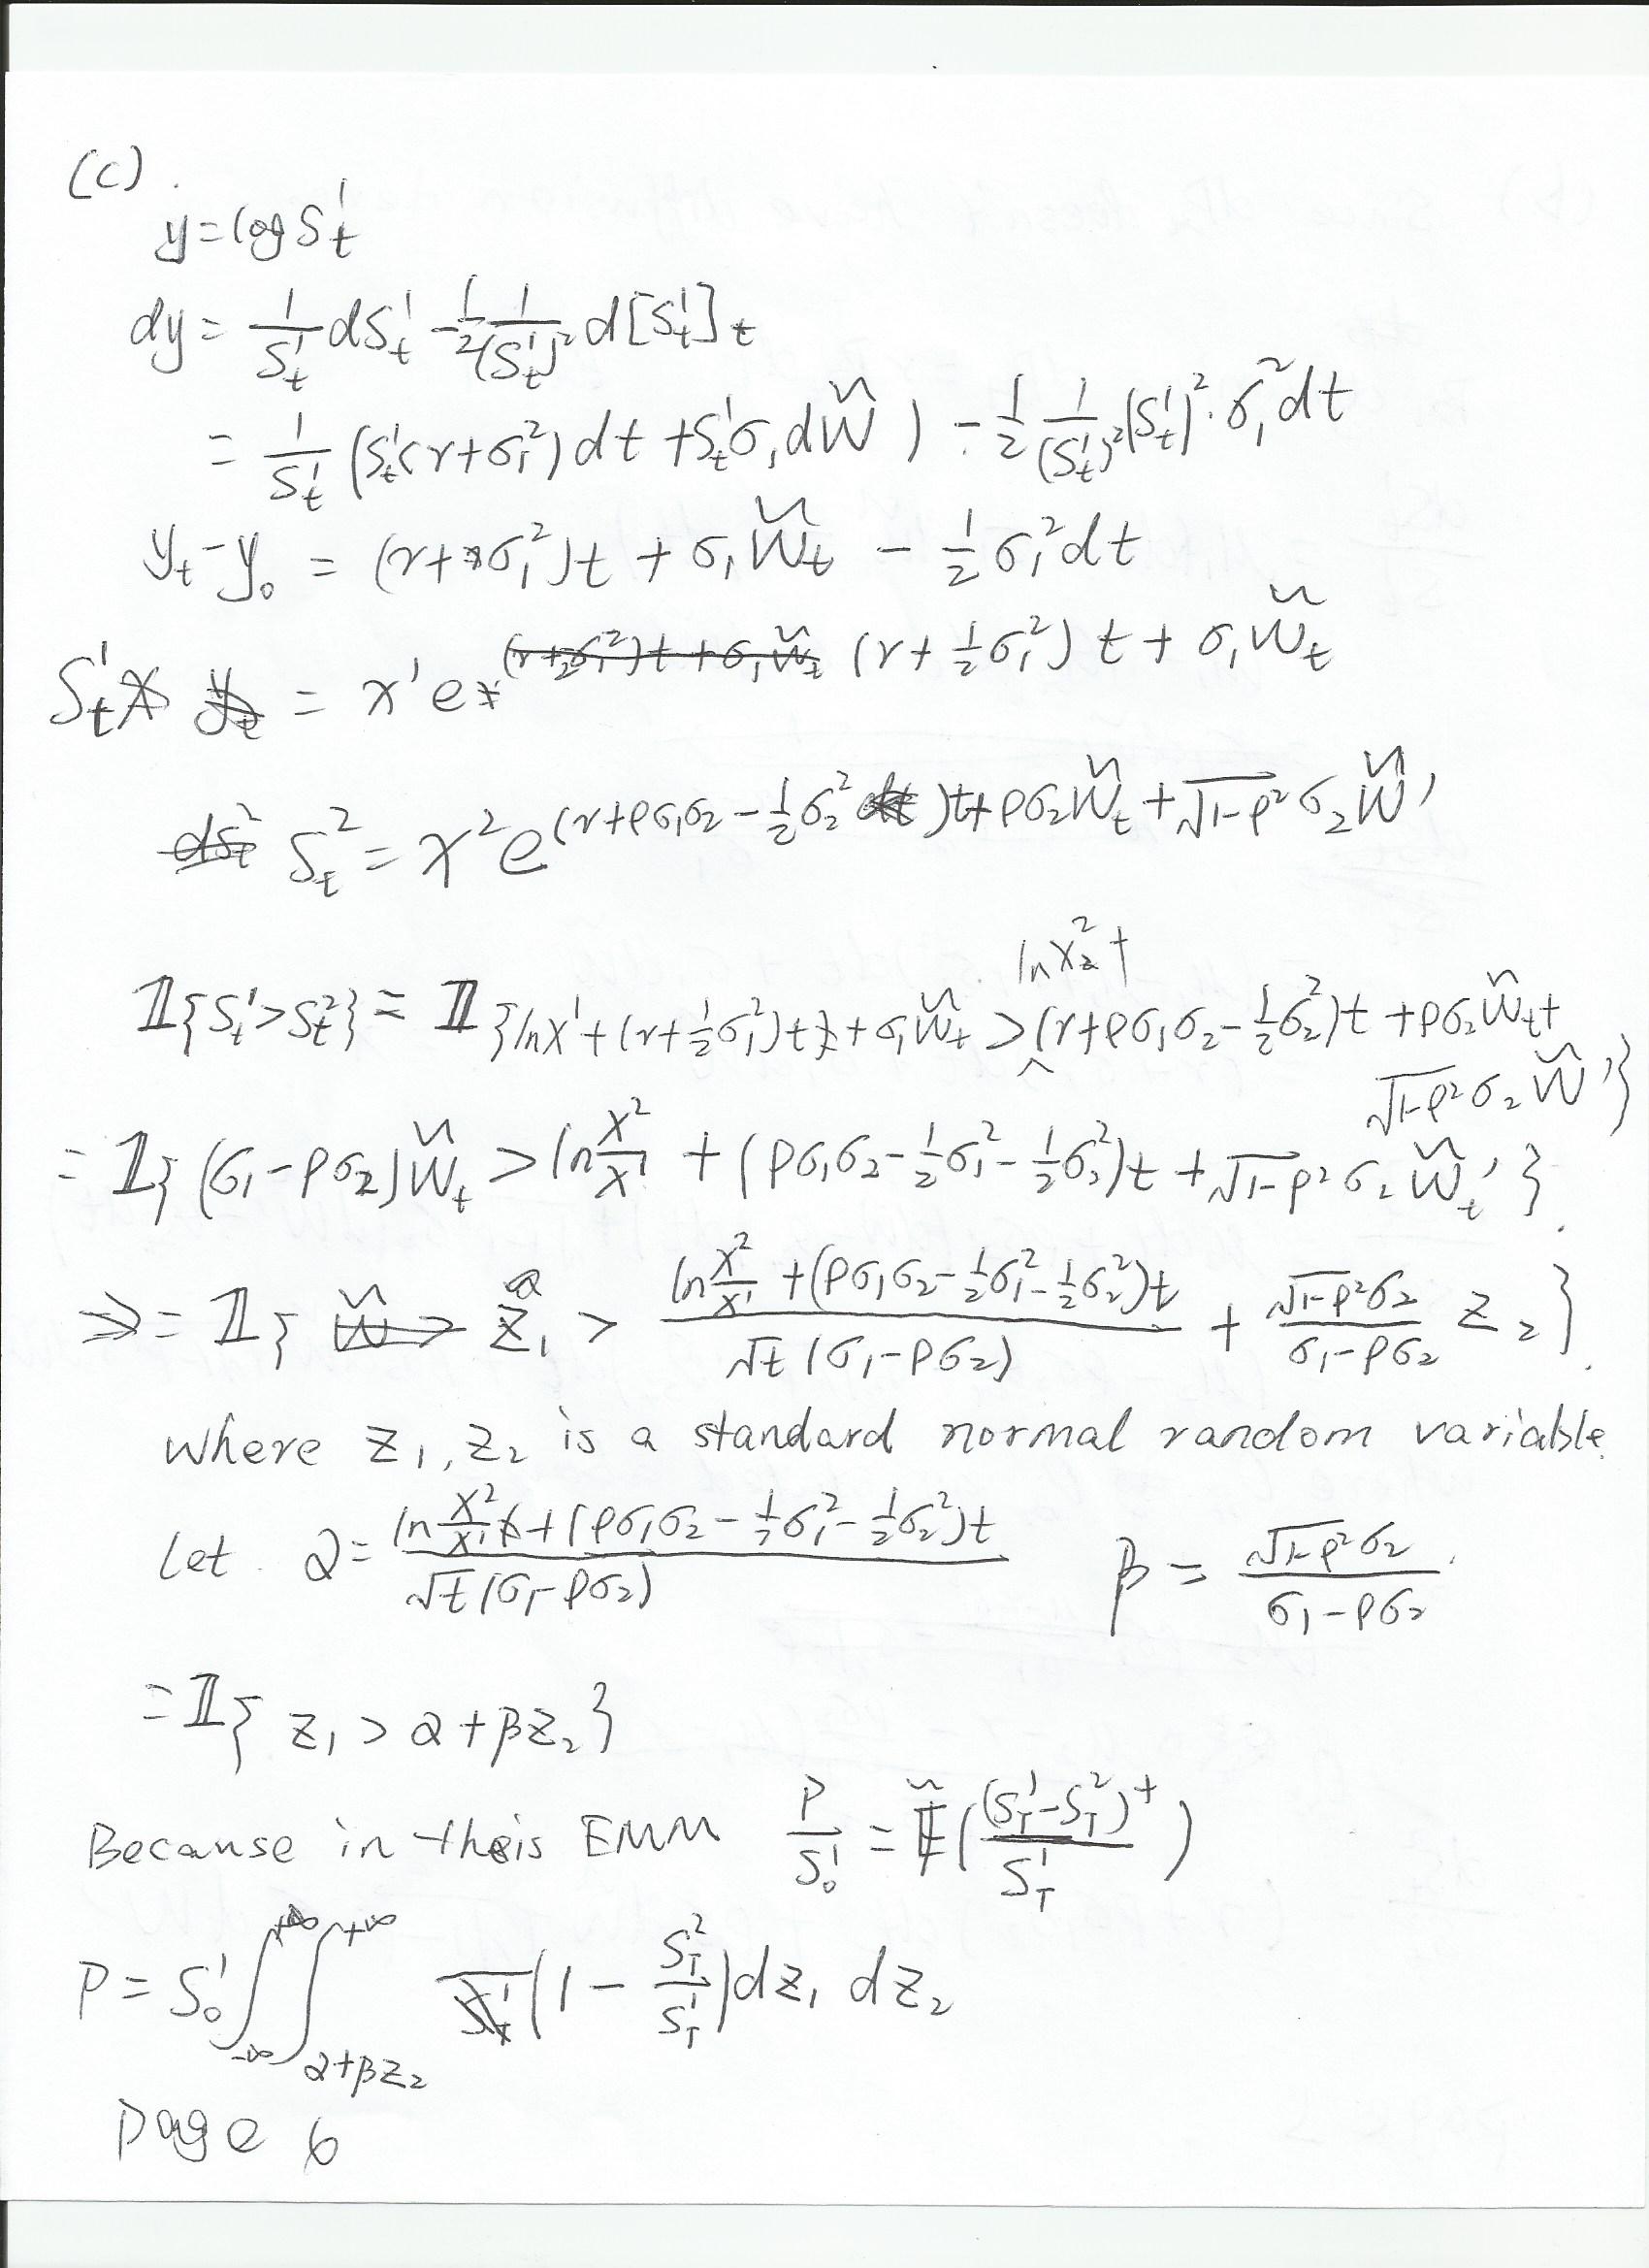 (c).
y = log S_t^1
dy = \frac{1}{S_t^1} dS_t^1 - \frac{1}{2} \frac{1}{(S_t^1)^2} d[S_t^1]_t
= \frac{1}{S_t^1} (S_t^1 (r+σ_1^2) dt + S_t^1 σ_1 d\tilde{W}) - \frac{1}{2} \frac{1}{(S_t^1)^2} (S_t^1)^2 · σ_1^2 dt
y_t - y_0 = (r+σ_1^2)t + σ_1 \tilde{W}_t - \frac{1}{2} σ_1^2 dt
S_t^1 = x^1 e^{(r + \frac{1}{2} σ_1^2) t + σ_1 \tilde{W}_t}
S_t^2 = x^2 e^{(r+ρσ_1σ_2 - \frac{1}{2} σ_2^2)t + ρσ_2 \tilde{W}_t + \sqrt{1-ρ^2} σ_2 \tilde{W}'}
𝟙{S_t^1 > S_t^2} = 𝟙{ln x^1 + (r+\frac{1}{2}σ_1^2)t + σ_1 \tilde{W}_t > ln x^2 + (r+ρσ_1σ_2 - \frac{1}{2}σ_2^2)t + ρσ_2 \tilde{W}_t +
\sqrt{1-ρ^2} σ_2 \tilde{W}'}
= 𝟙{(σ_1 - ρσ_2) \tilde{W}_t > ln \frac{x^2}{x^1} + (ρσ_1σ_2 - \frac{1}{2}σ_1^2 - \frac{1}{2}σ_2^2)t + \sqrt{1-ρ^2} σ_2 \tilde{W}_t'}.
⇒ = 𝟙{ z_1 > \frac{ln \frac{x^2}{x^1} + (ρσ_1σ_2 - \frac{1}{2}σ_1^2 - \frac{1}{2}σ_2^2)t}{\sqrt{t} (σ_1 - ρσ_2)} + \frac{\sqrt{1-ρ^2} σ_2}{σ_1 - ρσ_2} z_2 }.
where z_1, z_2 is a standard normal random variable.
Let α = \frac{ln \frac{x^2}{x^1} + (ρσ_1σ_2 - \frac{1}{2}σ_1^2 - \frac{1}{2}σ_2^2)t}{\sqrt{t} (σ_1 - ρσ_2)} β = \frac{\sqrt{1-ρ^2} σ_2}{σ_1 - ρσ_2}.
= 𝟙{ z_1 > α + βz_2 }
Because in this EMM \frac{P}{S_0^1} = \tilde{𝔼}(\frac{(S_T^1 - S_T^2)^+}{S_T^1})
P = S_0^1 \int_{-∞}^{+∞} \int_{α+βz_2}^{+∞} (1 - \frac{S_T^2}{S_T^1}) dz_1 dz_2
Page 6